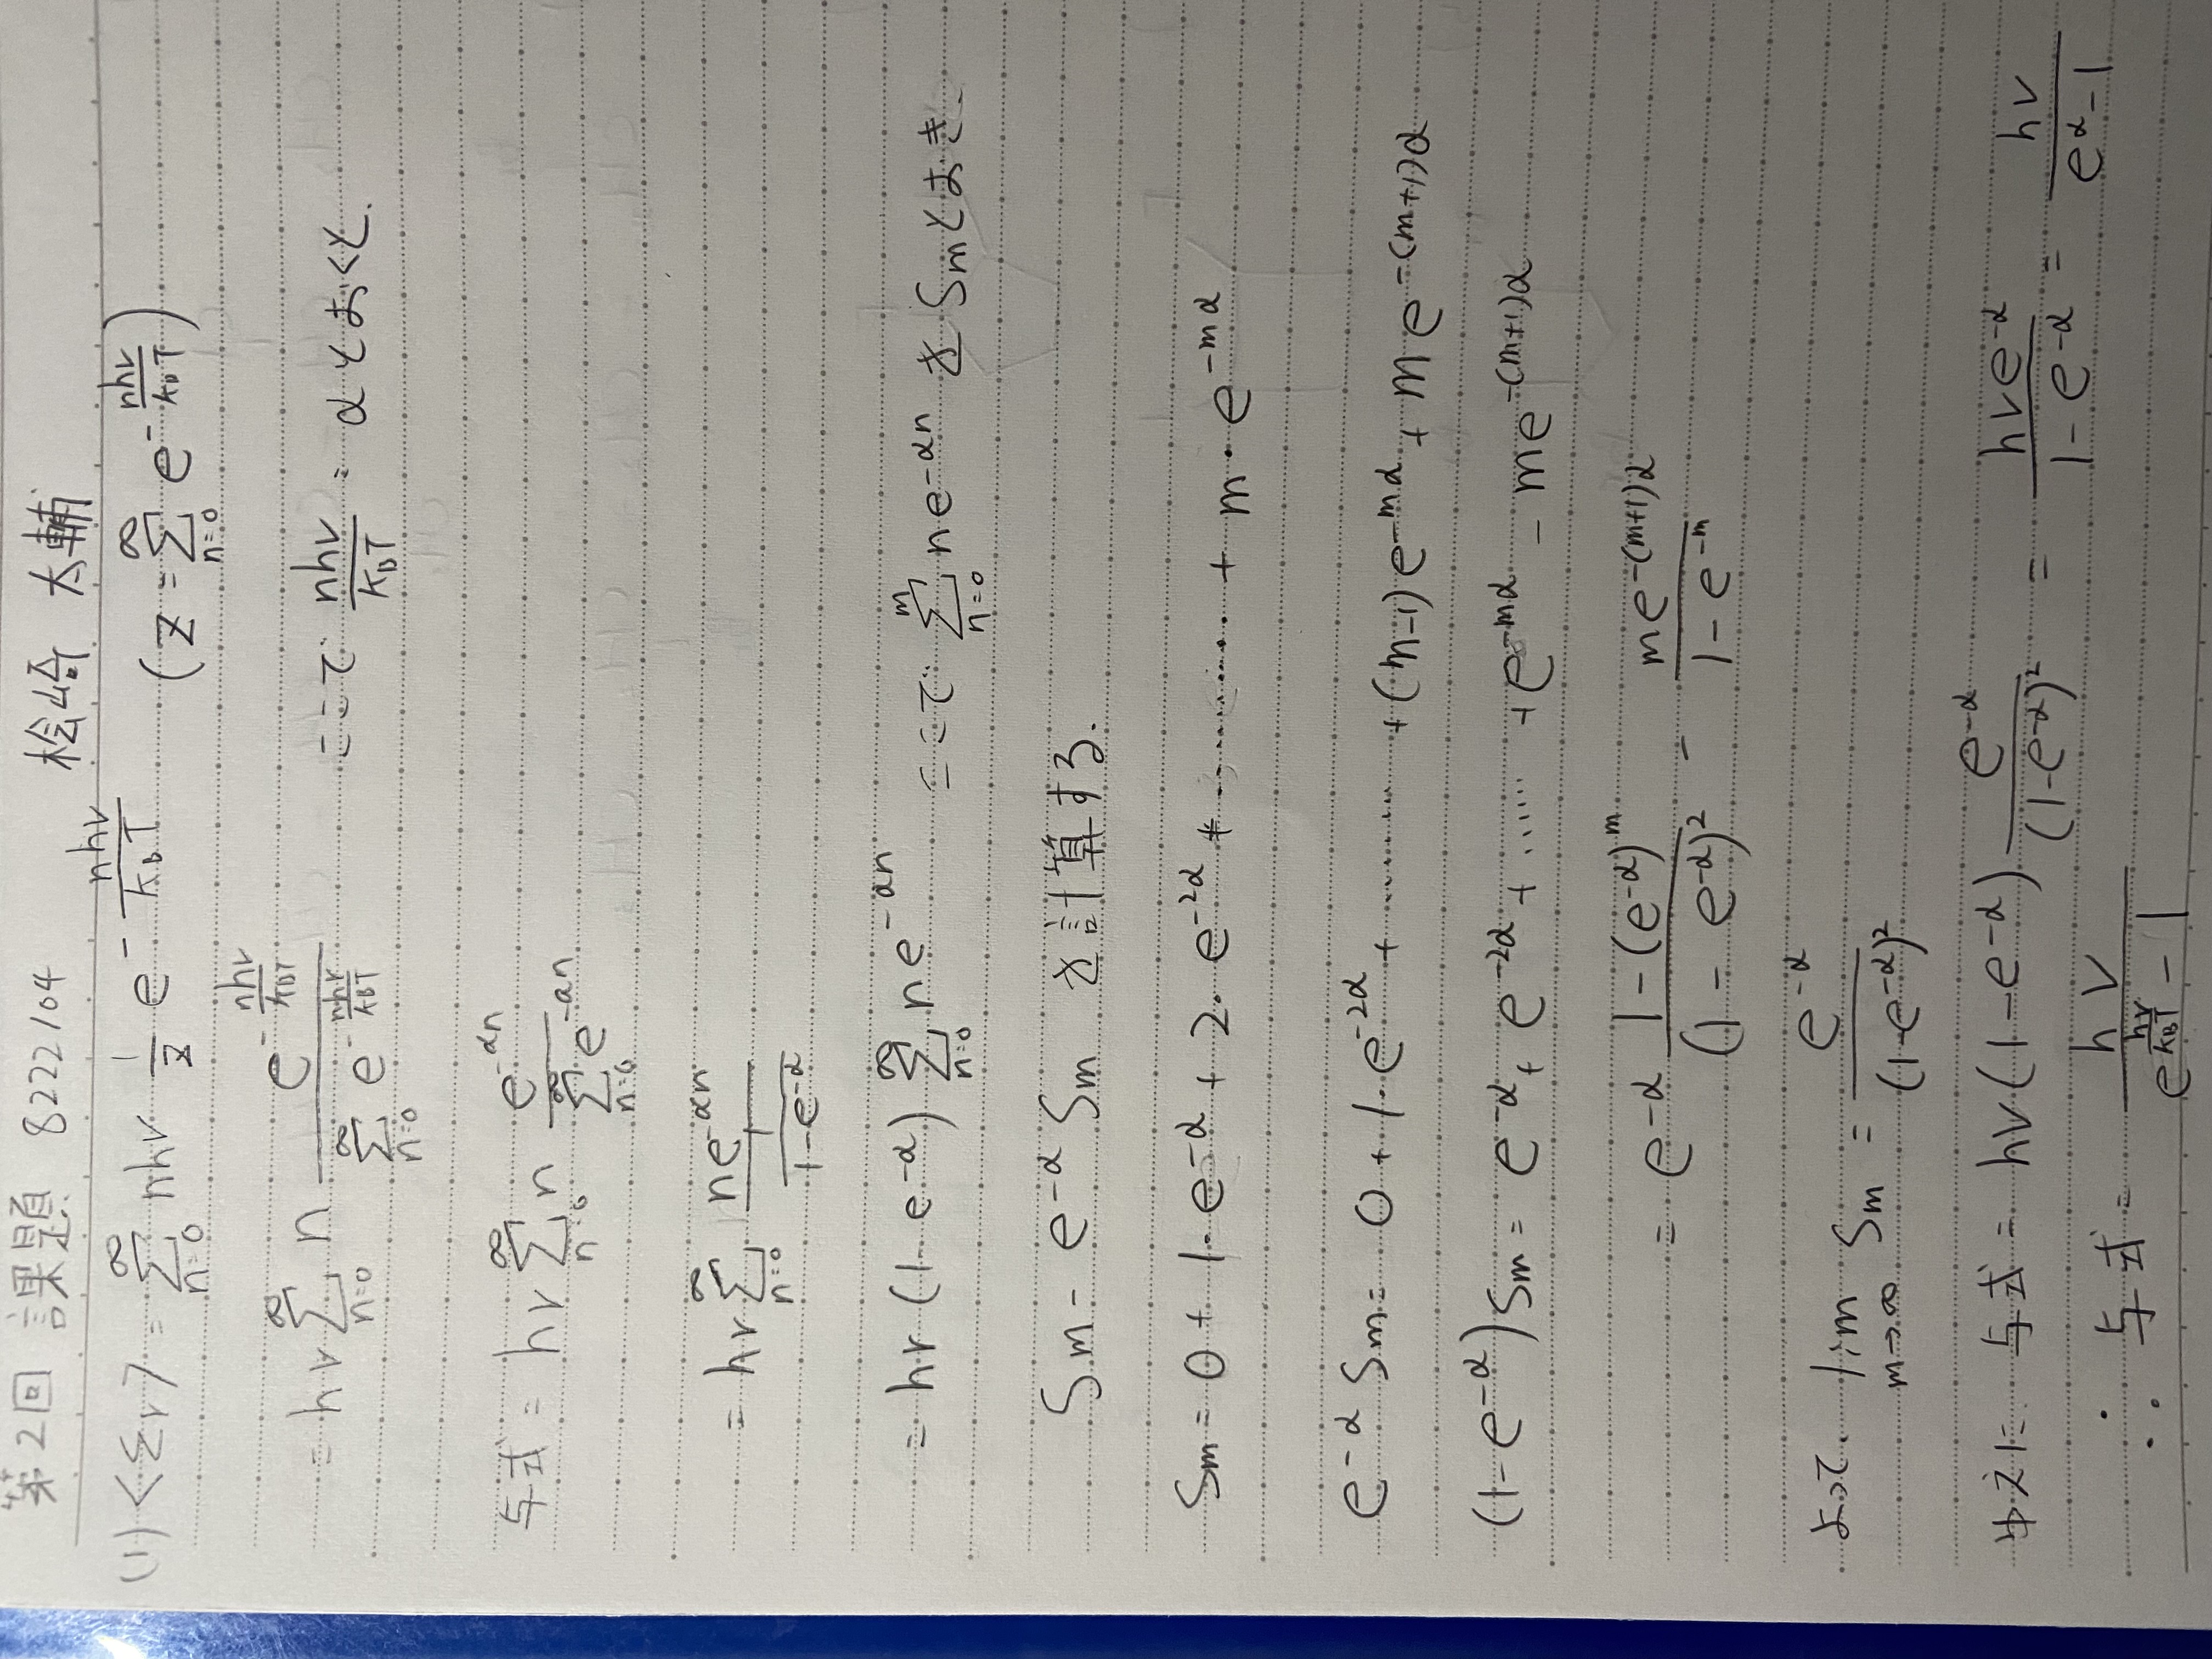 第2回 課題 8222104 桧崎 太輔
(1) <Σν> = \sum_{n=0}^{∞} nhν \frac{1}{Z} e^{-\frac{nhν}{k_BT}} (Z = \sum_{n=0}^{∞} e^{-\frac{nhν}{k_BT}})
= hν \sum_{n=0}^{∞} n \frac{e^{-\frac{nhν}{k_BT}}}{\sum_{n=0}^{∞} e^{-\frac{nhν}{k_BT}}} ここで \frac{nhν}{k_BT} = α とおくと.
与式 = hν \sum_{n=0}^{∞} n \frac{e^{-αn}}{\sum_{n=0}^{∞} e^{-αn}}
= hν \sum_{n=0}^{∞} \frac{ne^{-αn}}{\frac{1}{1-e^{-α}}}
= hν (1-e^{-α}) \sum_{n=0}^{∞} ne^{-αn} ここで \sum_{n=0}^{m} ne^{-αn} を Smとおき.
Sm - e^{-α} Sm を計算する.
Sm = 0 + 1・e^{-α} + 2・e^{-2α} + ………… + m・e^{-mα}
e^{-α} Sm = 0 + 1・e^{-2α} + ……… + (m-1)e^{-mα} + me^{-(m+1)α}
(1-e^{-α})Sm = e^{-α} + e^{-2α} + …… + e^{-mα} - me^{-(m+1)α}
= e^{-α} \frac{1-(e^{-α})^m}{(1-e^{-α})^2} - \frac{me^{-(m+1)α}}{1-e^{-m}}
よって. \lim_{m→∞} Sm = \frac{e^{-α}}{(1-e^{-α})^2}
ゆえに 与式 = hν(1-e^{-α}) \frac{e^{-α}}{(1-e^{-α})^2} = \frac{hνe^{-α}}{1-e^{-α}} = \frac{hν}{e^{α}-1}
∴ 与式 = \frac{hν}{e^{\frac{hν}{k_BT}}-1}